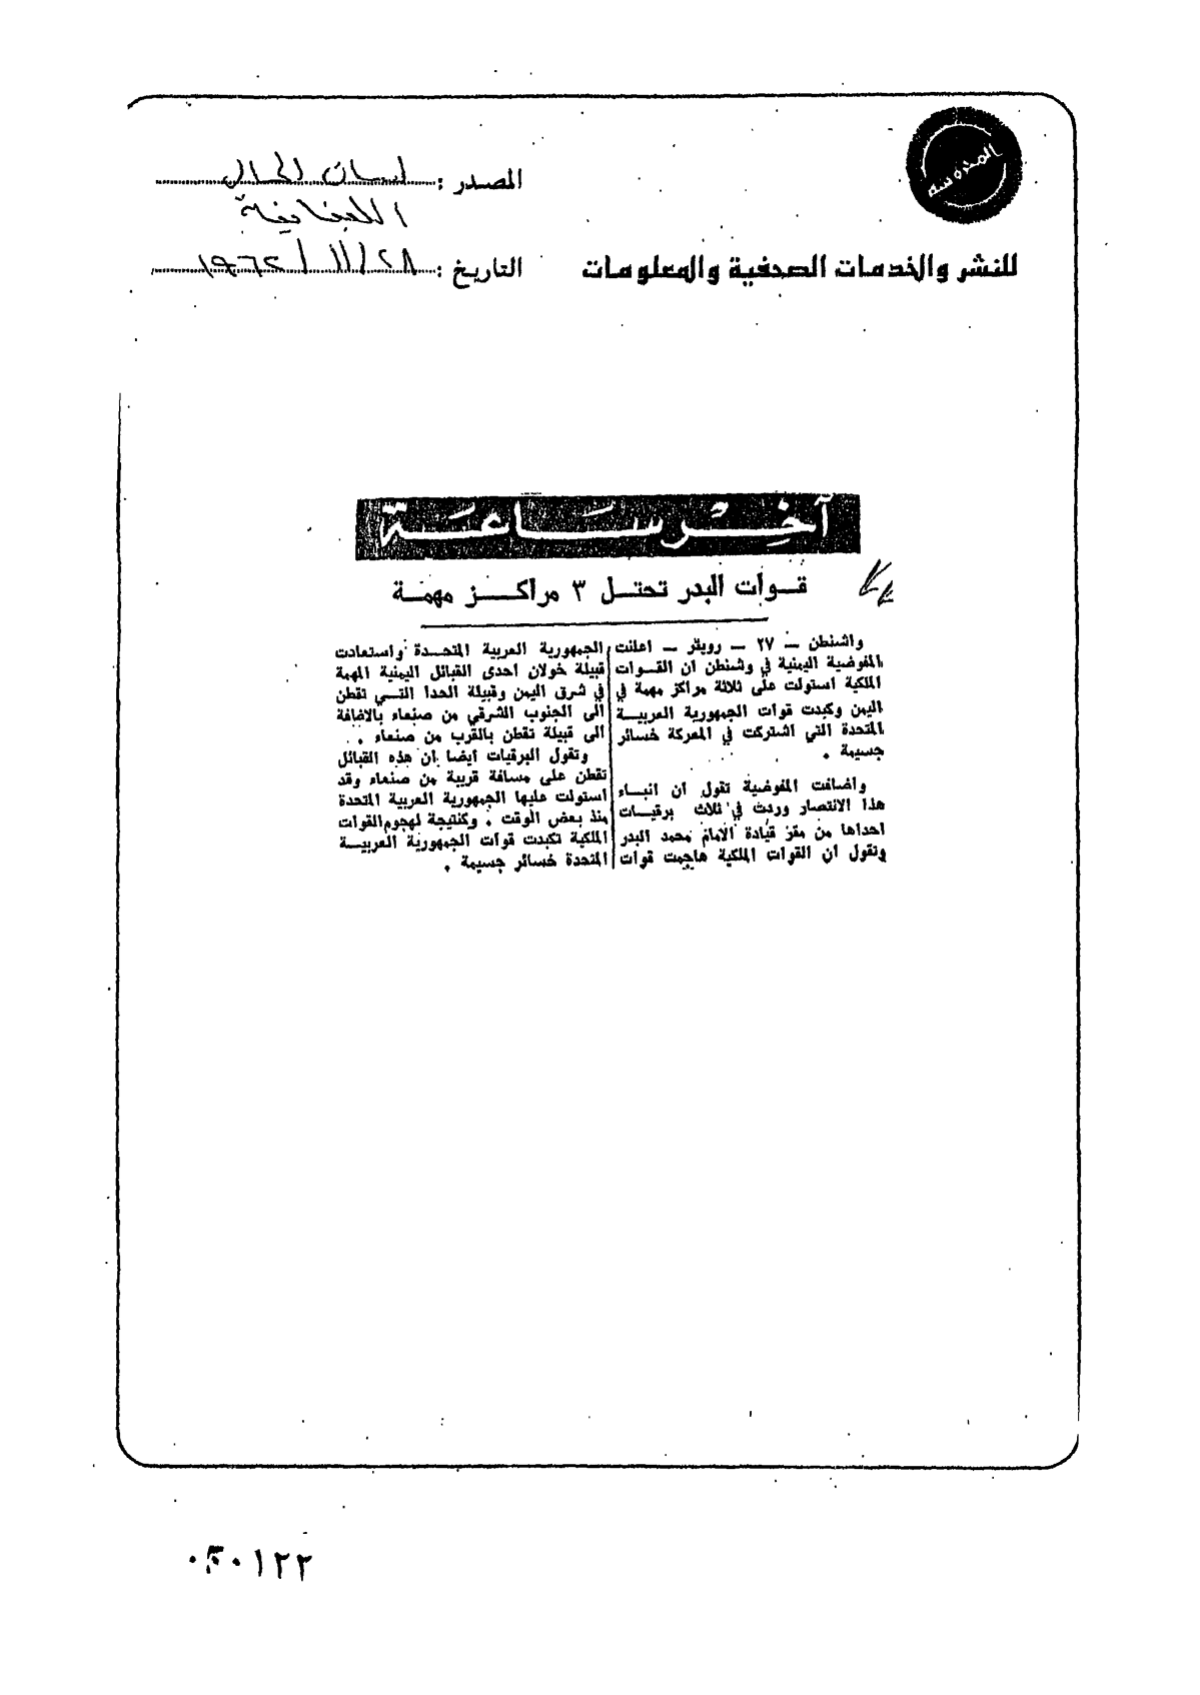 المحروسة
للنشر والخدمات الصحفية والمعلومات
المصدر : لسان الحال
اللبنانية
التاريخ : ٢٨ / ١١ / ١٩٦٢
آخِر سَاعَة
قوات البدر تحتل ٣ مراكز مهمة
واشنطن – ٢٧ – رويتر – اعلنت
المفوضية اليمنية في وشنطن ان القوات
الملكية استولت على ثلاثة مراكز مهمة في
اليمن وكبدت قوات الجمهورية العربية
المتحدة التي اشتركت في المعركة خسائر
جسيمة .
واضافت المفوضية تقول ان انباء
هذا الانتصار وردت في ثلاث برقيات
احداها من مقر قيادة الامام محمد البدر
وتقول ان القوات الملكية هاجمت قوات
الجمهورية العربية المتحدة واستعادت
قبيلة خولان احدى القبائل اليمنية المهمة
في شرق اليمن وقبيلة الحدا التي تقطن
الى الجنوب الشرقي من صنعاء بالاضافة
الى قبيلة تقطن بالقرب من صنعاء .
وتقول البرقيات ايضا ان هذه القبائل
تقطن على مسافة قريبة من صنعاء وقد
استولت عليها الجمهورية العربية المتحدة
منذ بعض الوقت . وكنتيجة لهجوم القوات
الملكية تكبدت قوات الجمهورية العربية
المتحدة خسائر جسيمة .